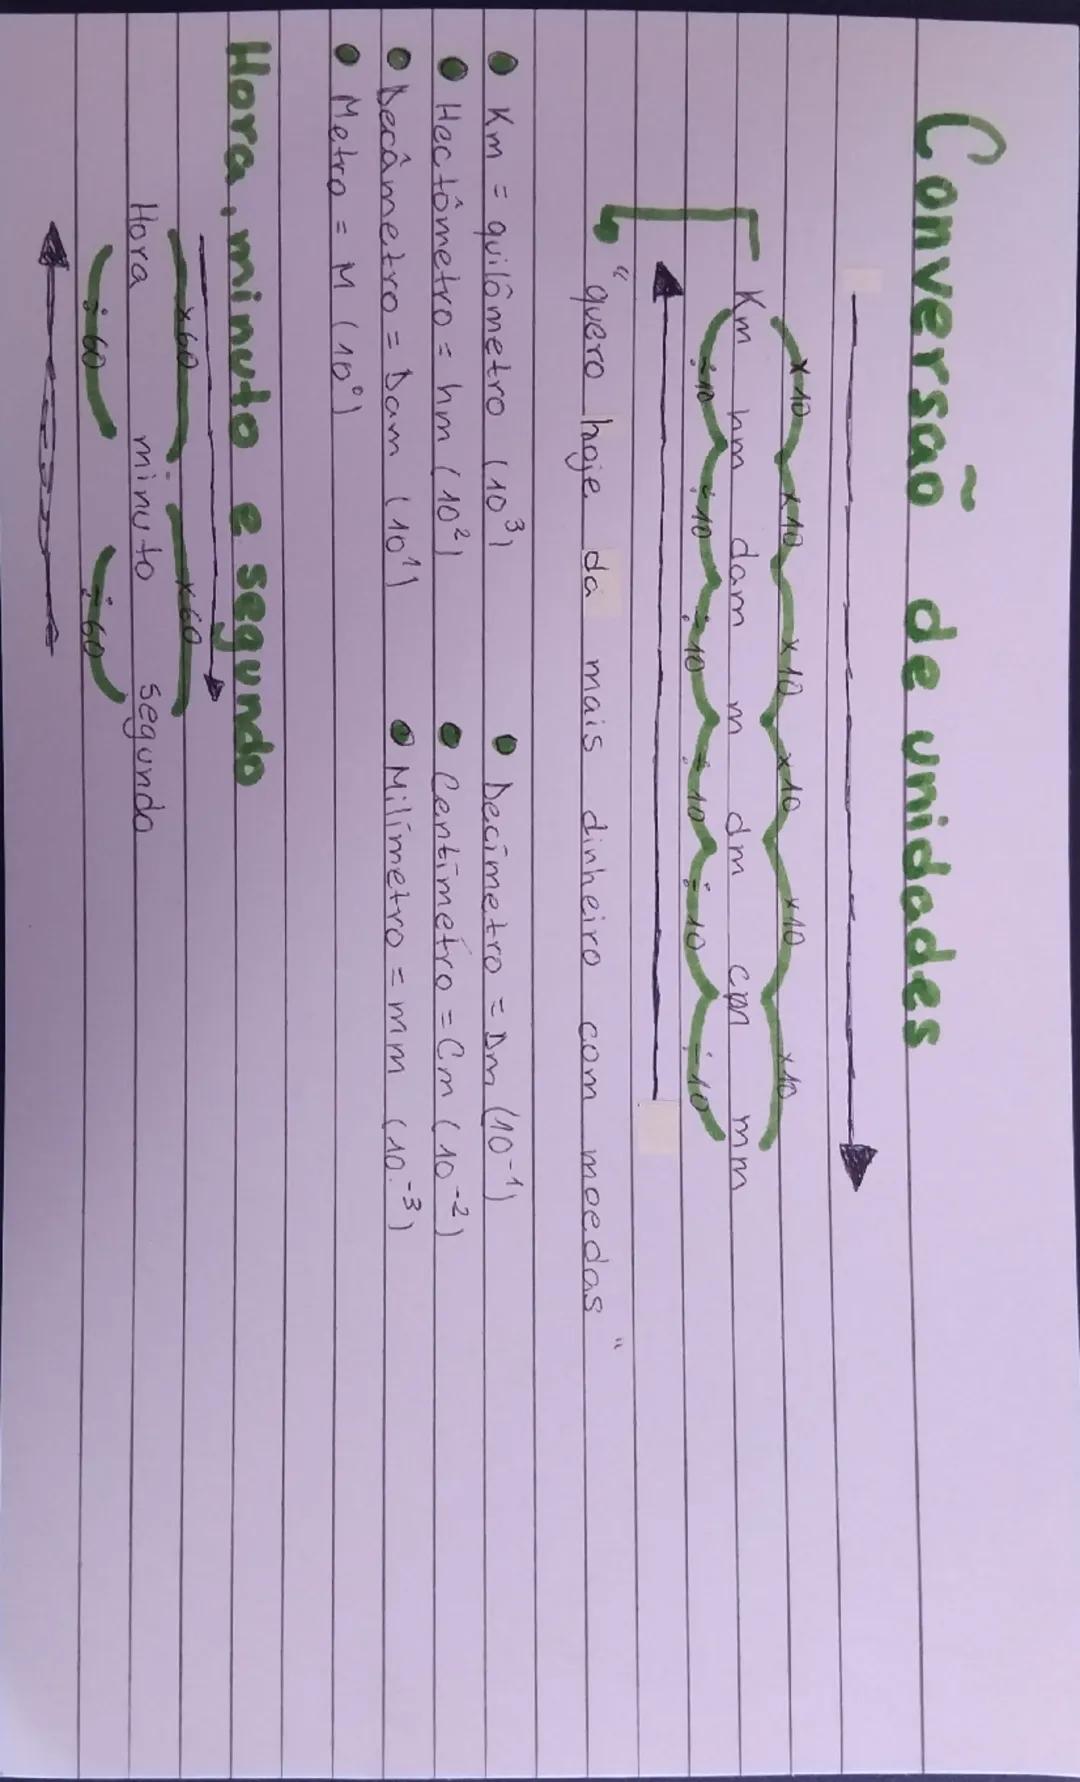 Conversão de unidades
x10 x10 x10 x10 x10 x10
Km hm dam m dm cm mm
÷10 ÷10 ÷10 ÷10 ÷10 ÷10
"quero hoje da mais dinheiro com moedas"
Km = quilômetro (10³) Decímetro = Dm (10⁻¹)
Hectômetro = hm (10²) Centímetro = Cm (10⁻²)
Decâmetro = Dam (10¹) Milímetro = mm (10⁻³)
Metro = M (10⁰)
Hora, minuto e segundo
x60 x60
Hora minuto segundo
÷60 ÷60